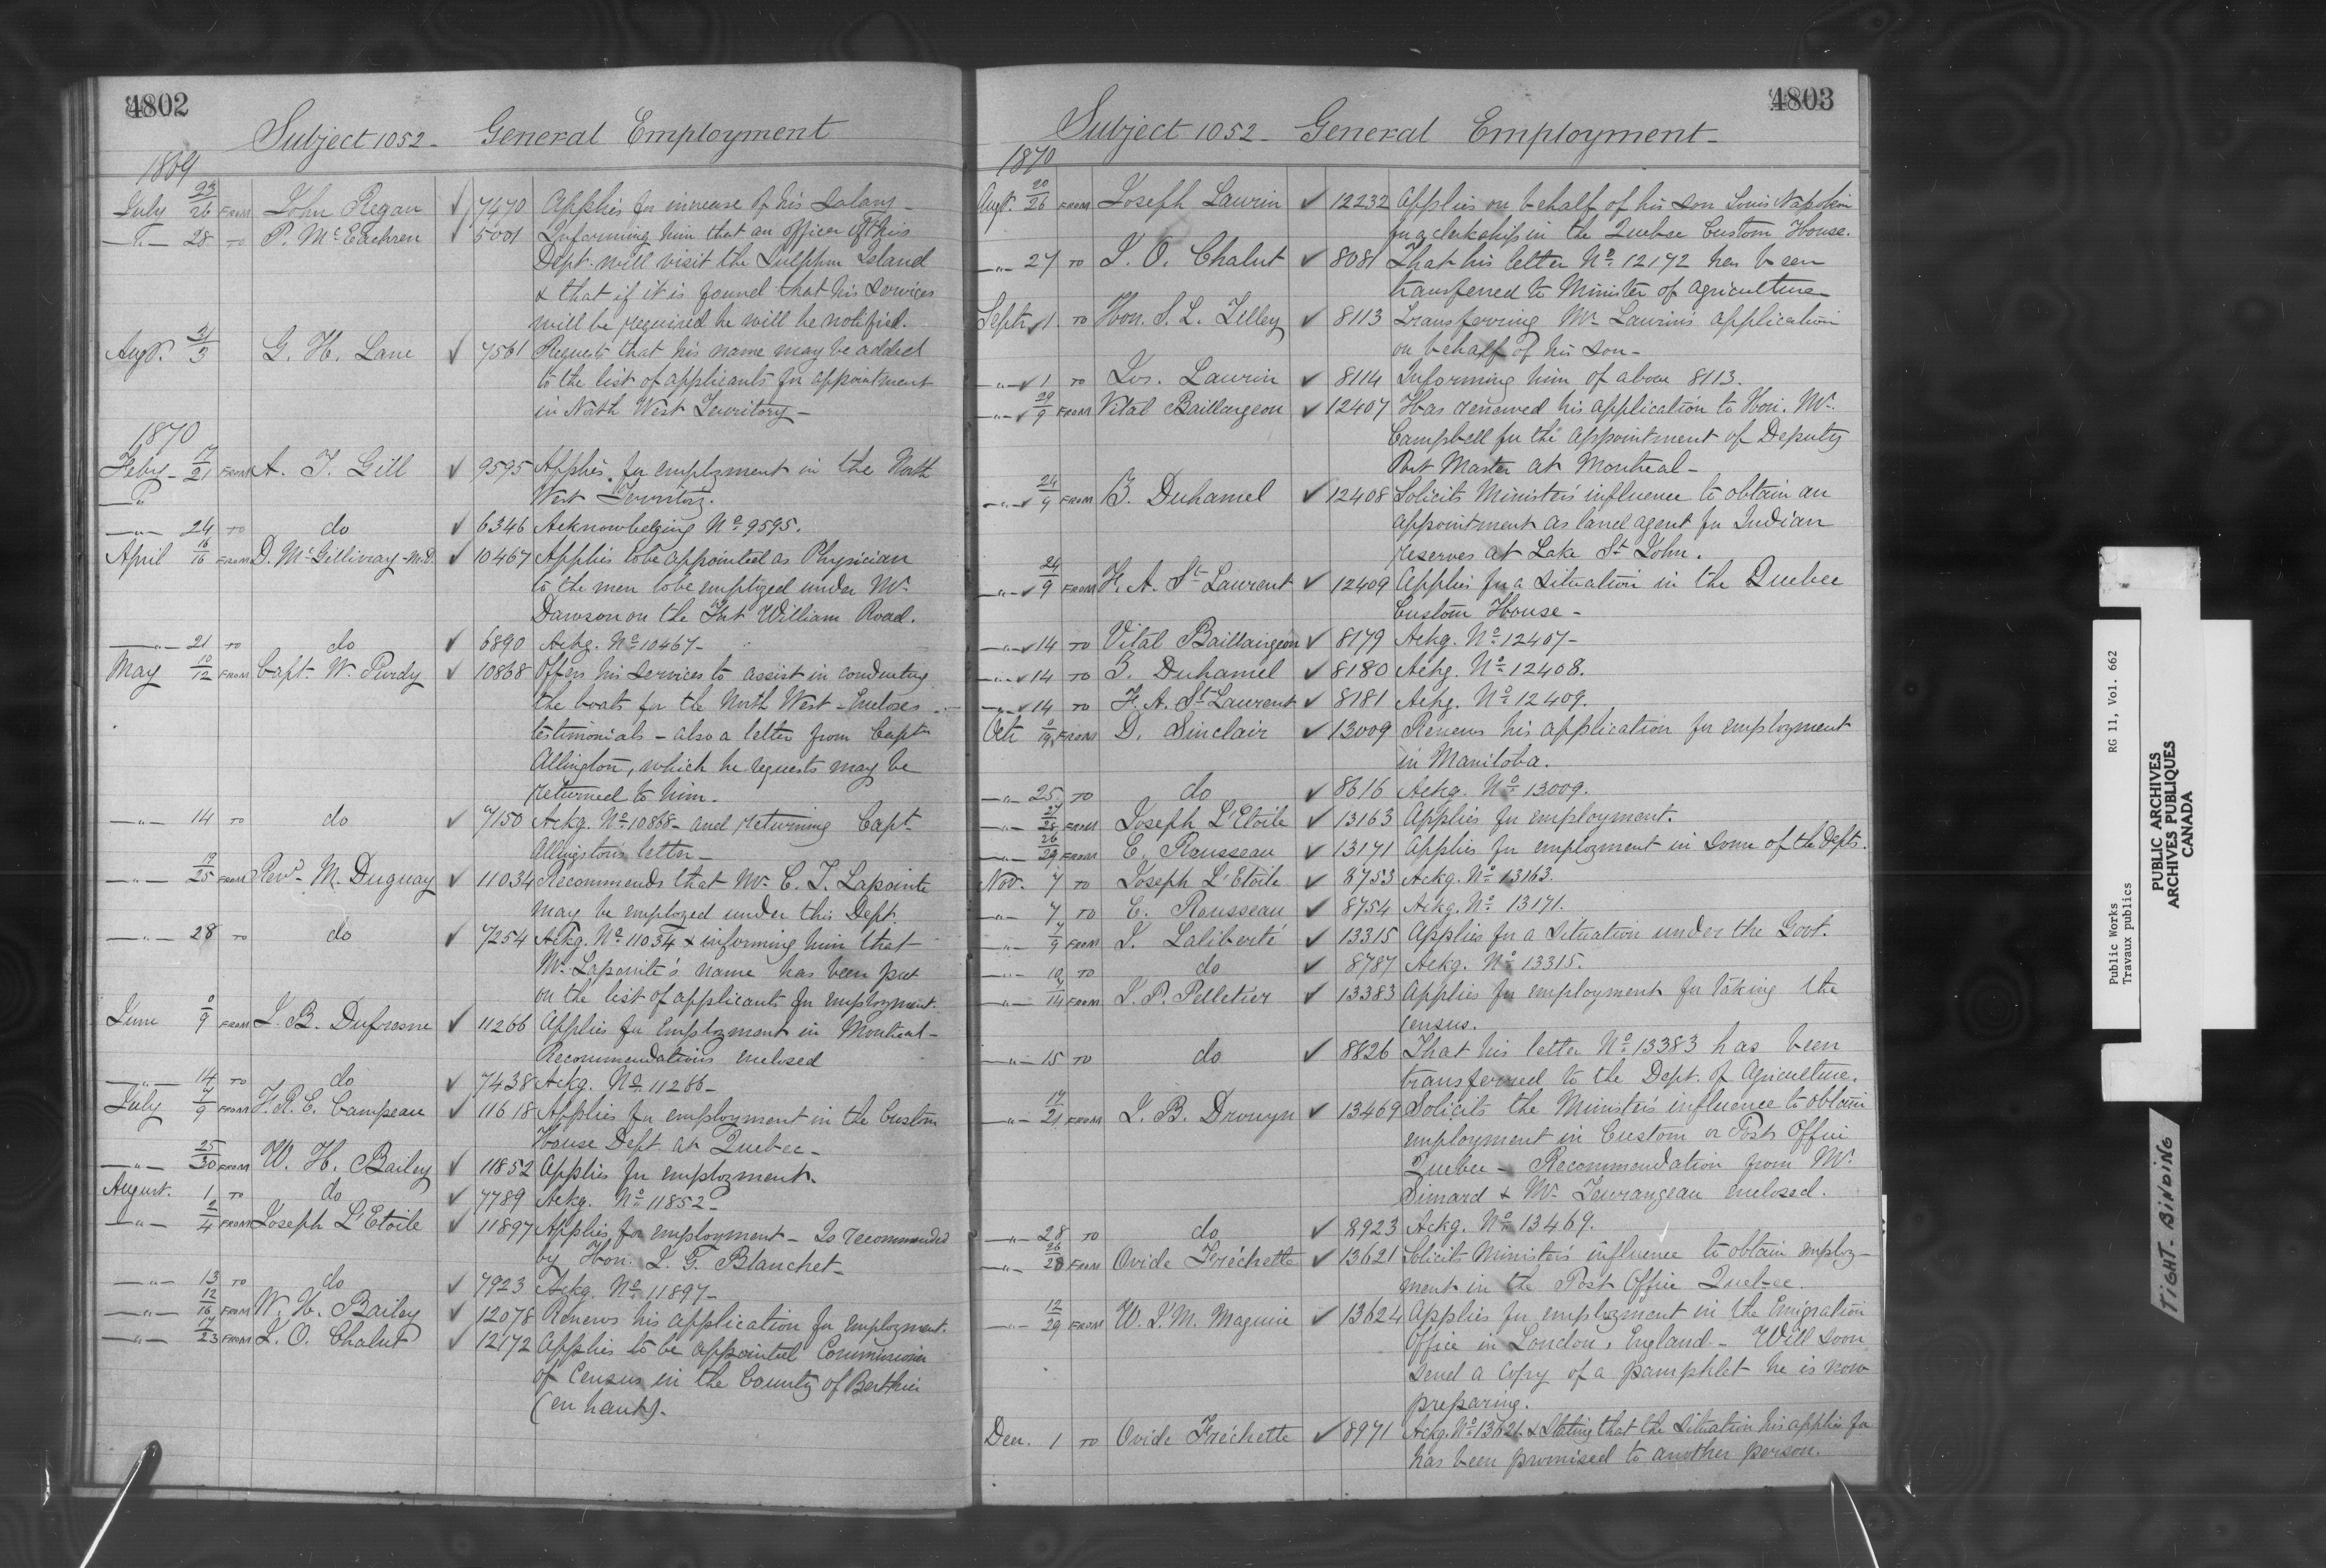 4802
Subject 1052 - General Employment
1869
July 23/26 FROM John Regan ✓ 7470 Applies for increase of his Salary -
28 TO P. McEachren ✓ 5001 Informing him that an officer of this
Dept. will visit the Sulphur Island
& that if it is found that his services
will be required he will be notified.
Augt. 2/3 G. H. Lane ✓ 7561 Requests that his name may be added
to the list of applicants for appointment
in North West Territory -
1870
Feby - 17/21 FROM A. J. Gill ✓ 9595 Applies for employment in the North
West Territory.
-"- 24 TO do ✓ 6346 Acknowledging No. 9595.
April 16/16 FROM D. McGillivray - M.D. ✓ 10467 Applies to be appointed as Physician
to the men to be employed under Mr.
Dawson on the Fort William Road.
-"- 21 TO do ✓ 6890 Ackg. No 10467 -
May 10/12 FROM Capt. W. Purdy ✓ 10868 Offers his services to assist in conducting
the boats for the North West - Encloses
testimonials - also a letter from Capt
Allington, which he requests may be
returned to him.
-"- 14 TO do ✓ 7150 Ackg. No. 10868 - and returning Capt
Allington's letter -
-"- 19/25 FROM Revd. M. Duguay ✓ 11034 Recommends that Mr. C. T. Lapointe
may be employed under this Dept.
-"- 28 TO do ✓ 7254 Ackg. No. 11034 & informing him that
Mr. Lapointe's name has been put
on the list of applicants for employment.
June 8/9 FROM J. B. Dufresne ✓ 11266 Applies for employment in Montreal -
Recommendations enclosed
-"- 14 TO do ✓ 7438 Ackg. No. 11266 -
July 7/9 FROM F. R. E. Campeau ✓ 11618 Applies for employment in the Custom
House Dept. at Quebec -
-"- 25/30 FROM W. H. Bailey ✓ 11852 Applies for employment.
August. 1 TO do ✓ 7789 Ackg. No. 11852 -
-"- 2/4 FROM Joseph L'Etoile ✓ 11897 Applies for employment - Is recommended
by Hon. J. G. Blanchet -
-"- 13 TO do ✓ 7923 Ackg. No. 11897 -
-"- 12/16 FROM W. H. Bailey ✓ 12078 Renews his application for employment.
-"- 17/23 FROM J. O. Chalut ✓ 12172 Applies to be appointed Commissioner
of Census in the County of Berthier
(en haut).
4803
Subject 1052 - General Employment -
1870
Augt. 20/26 FROM Joseph Laurin ✓ 12232 Applies on behalf of his son Louis Napoleon
for a clerkship in the Quebec Custom House.
-"- 27 TO J. O. Chalut ✓ 8081 That his letter No. 12172 has been
transferred to Minister of Agriculture
Septr ✓ 1 TO Hon. S. L. Tilley ✓ 8113 Transferring Mr. Laurin's application
on behalf of his son -
-"- ✓ 1 TO Jos. Laurin ✓ 8114 Informing him of above 8113.
-"- ✓ 29/9 FROM Vital Baillargeon ✓ 12407 Has renewed his application to Hon. Mr.
Campbell for the appointment of Deputy
Post Master at Montreal -
-"- ✓ 24/9 FROM Z. Duhamel ✓ 12408 Solicits Minister's influence to obtain an
appointment as land agent for Indian
reserves at Lake St. John.
-"- ✓ 24/9 FROM F. A. St Laurent ✓ 12409 Applies for a situation in the Quebec
Custom House -
-"- ✓ 14 TO Vital Baillargeon ✓ 8179 Ackg. No. 12407 -
-"- ✓ 14 TO Z. Duhamel ✓ 8180 Ackg. No. 12408.
-"- ✓ 14 TO F. A. St Laurent ✓ 8181 Ackg. No. 12409.
Octr 8/19 FROM D. Sinclair ✓ 13009 Renews his application for employment
in Manitoba.
-"- 25 TO do ✓ 8616 Ackg. No. 13009.
-"- 27/28 FROM Joseph L'Etoile ✓ 13163 Applies for employment.
-"- 26/29 FROM E. Rousseau ✓ 13171 Applies for employment in some of the Depts.
Nov. 7 TO Joseph L'Etoile ✓ 8753 Ackg. No. 13163.
-"- 7 TO E. Rousseau ✓ 8754 Ackg. No. 13171.
-"- 7/9 FROM J. Laliberté ✓ 13315 Applies for a situation under the Govt.
-"- 10 TO do ✓ 8787 Ackg. No. 13315.
-"- 9/14 FROM J. P. Pelletier ✓ 13383 Applies for employment for taking the
Census.
-"- 15 TO do ✓ 8826 That his letter No. 13383 has been
transferred to the Dept. of Agriculture.
-"- 17/21 FROM J. B. Drouyn ✓ 13469 Solicits the Minister's influence to obtain
employment in Custom or Post Office
Quebec - Recommendation from Mr.
Simard & Mr. Tourangeau enclosed.
-"- 28 TO do ✓ 8923 Ackg. No 13469.
-"- 26/28 FROM Ovide Fréchette ✓ 13621 Solicits Minister's influence to obtain employ-
ment in the Post Office Quebec.
-"- 12/29 FROM W. J. M. Maguire ✓ 13624 Applies for employment in the Emigration
Office in London, England - Will soon
send a copy of a pamphlet he is now
preparing.
Decr. 1 TO Ovide Fréchette ✓ 8971 Ackg. No 13621 & Stating that the situation his applies for
has been promised to another person.
Public Works RG 11, Vol. 662
Travaux publics
PUBLIC ARCHIVES
ARCHIVES PUBLIQUES
CANADA
TIGHT-BINDING